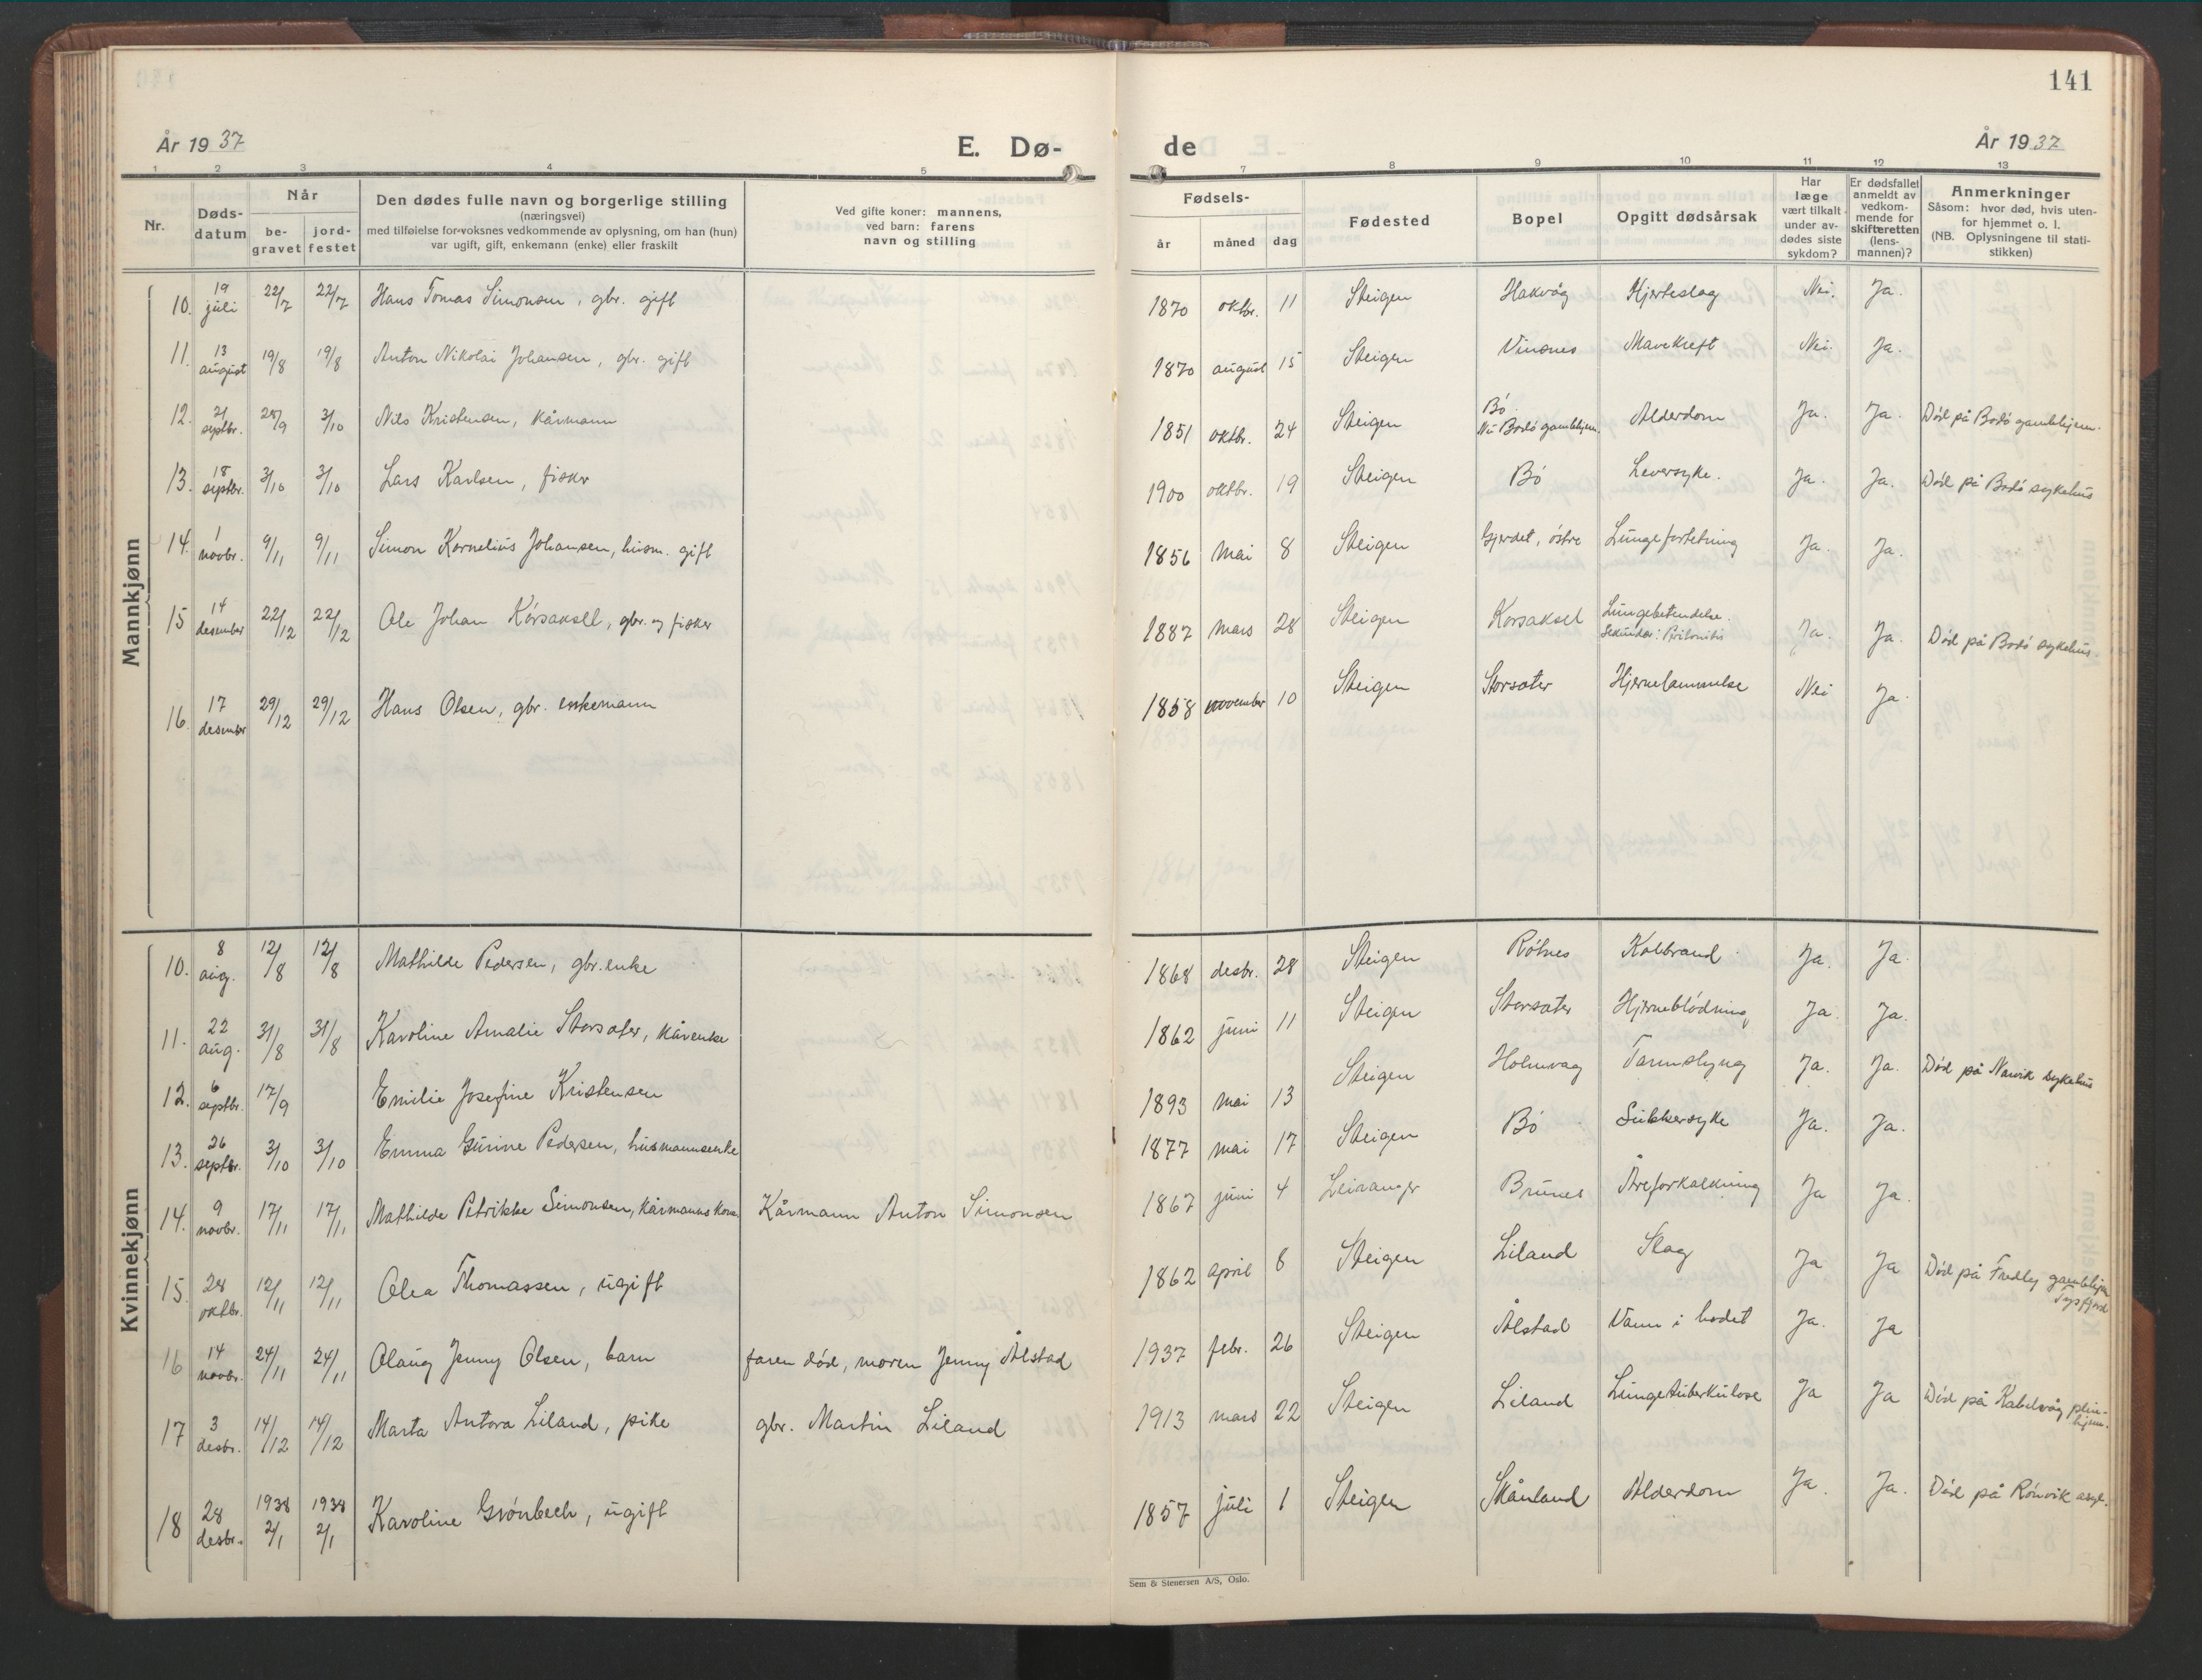 141
År 1937 E. Dø- de År 1937
1 2 3 4 5 7 8 9 10 11 12 13
Nr. Døds-datum Når be-gravet jord-festet Den dødes fulle navn og borgerlige stilling (næringsvei) med tilføielse for voksnes vedkommende av oplysning, om han (hun) var ugift, gift, enkemann (enke) eller fraskilt Ved gifte koner: mannens, ved barn: farens navn og stilling Fødsels- år måned dag Fødested Bopel Opgitt dødsårsak Har læge vært tilkalt under av-dødes siste sykdom? Er dødsfallet anmeldt av vedkom-mende for skifteretten (lens-mannen)? Anmerkninger Såsom: hvor død, hvis uten-for hjemmet o. l. (NB. Oplysningene til stati-stikken)
Mannkjønn
10. 19 juli 22/7 22/7 Hans Tomas Simonsen, gbr. gift 1870 oktbr. 11 Steigen Hakvåg Hjerteslag Nei. Ja.
11. 13 august 19/8 19/8 Anton Nikolai Johansen, gbr. gift 1870 august 15 Steigen Vinsnes Mavekreft Nei. Ja.
12. 21 septbr. 28/9 3/10 Nils Kristensen, kårmann 1851 oktbr. 24 Steigen Bö. Nu Bodö gamlehjem. Alderdom Ja. Ja. Död på Bodö gamlehjem.
13. 18 septbr. 3/10 3/10 Lars Karlsen, fisker 1900 oktbr. 19 Steigen Bö Leversyke. Ja. Ja. Död på Bodö sykehus
14. 1 novbr. 9/11 9/11 Simon Kornelius Johansen, husm. gift 1856 mai 8 Steigen Gjerdet, östre Lungefortetning Ja. Ja.
15 14 desember 22/12 22/12 Ole Johan Korsaksel, gbr. og fisker 1887 mars 28 Steigen Korsaksel Lungebetendelse. Sekundær: Peritonitis Ja. Ja. Död på Bodö sykehus.
16. 17 desember 29/12 29/12 Hans Olsen, gbr. enkemann 1858 november 10 Steigen Storsæter Hjernelammelse Nei Ja.
Kvinnekjønn
10. 8 aug. 12/8 12/8 Mathilde Pedersen, gbr. enke 1868 desbr. 28 Steigen Rötnes Kolbrand. Ja. Ja.
11. 22 aug. 31/8 31/8 Karoline Amalie Storsæter, kårenke 1862 juni 11 Steigen Storsæter Hjerneblödning Ja. Ja.
12. 6 septbr. 17/9 Emilie Josefine Kristensen 1893 mai 13 Steigen Holmvag Tarmslyng Ja. Ja. Död på Narvik sykehus
13. 26 septbr. 3/10 3/10 Emma Gurine Pedersen, husmannsenke 1877 mai 17 Steigen Bö Sukkersyke Ja. Ja.
14. 9 novbr. 17/11 17/11 Mathilde Petrikke Simonsen, kårmanns kone Kårmann Anton Simonsen 1867 juni 4 Leiranger Brunes Åreforkalkning Ja Ja.
15. 28 oktbr. 12/11 12/11 Olea Thomassen, ugift 1862 april 8 Steigen Liland Slag Ja Ja Död på Fredly gamlehjem
16 14 novbr. 24/11 24/11 Olaug Jenny Olsen, barn faren död, moren Jenny Ålstad 1937 febr. 26 Steigen Ålstad Vann i hodet Ja. Ja
17 3 desbr. 14/12 14/12 Marta Antora Liland, pike gbr. Martin Liland 1913 mars 22 Steigen Liland Lungetuberkulose Ja Ja Död på Kabelvåg pleie-hjem.
18 28 desbr. 1938 2/1 1938 2/1 Karoline Grönbech, ugift 1857 juli 1 Steigen Skånland Alderdom Ja. Ja. Död på Rönvik asyl.
Sem & Stenersen A/S, Oslo.